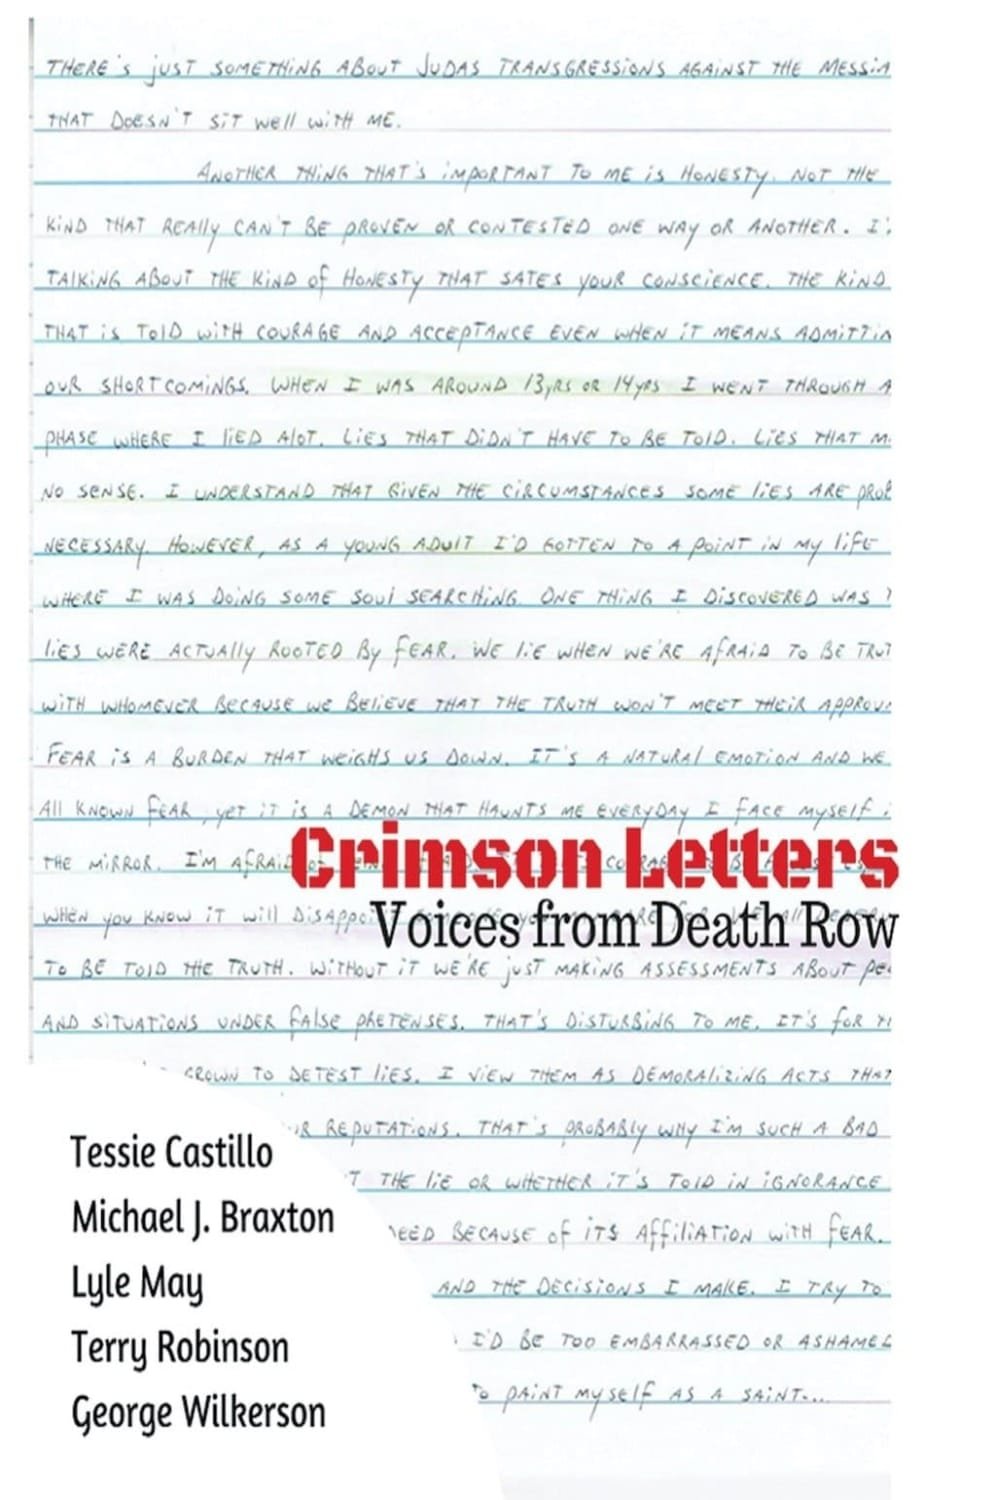 THERE'S JUST SOMETHING ABOUT JUDAS TRANSGRESSIONS AGAINST THE MESSIA
THAT DOESN'T SIT WELL WITH ME.
ANOTHER THING THAT'S IMPORTANT TO ME IS HONESTY. NOT THE
KIND THAT REALLY CAN'T BE PROVEN OR CONTESTED ONE WAY OR ANOTHER. I'
TALKING ABOUT THE KIND OF HONESTY THAT SATES YOUR CONSCIENCE. THE KIND
THAT IS TOLD WITH COURAGE AND ACCEPTANCE EVEN WHEN IT MEANS ADMITTIN
OUR SHORTCOMINGS. WHEN I WAS AROUND 13yRS OR 14yRS I WENT THROUGH A
PHASE WHERE I LIED ALOT. LIES THAT DIDN'T HAVE TO BE TOLD. LIES THAT M
NO SENSE. I UNDERSTAND THAT GIVEN THE CIRCUMSTANCES SOME LIES ARE PROB
NECESSARY. HOWEVER, AS A YOUNG ADULT I'D GOTTEN TO A POINT IN MY LIFE
WHERE I WAS DOING SOME SOUL SEARCHING. ONE THING I DISCOVERED WAS
LIES WERE ACTUALLY ROOTED BY FEAR. WE LIE WHEN WE'RE AFRAID TO BE TRUT
WITH WHOMEVER BECAUSE WE BELIEVE THAT THE TRUTH WON'T MEET THEIR APPROV
FEAR IS A BURDEN THAT WEIGHS US DOWN. IT'S A NATURAL EMOTION AND WE
ALL KNOWN FEAR, YET IT IS A DEMON THAT HAUNTS ME EVERYDAY I FACE MYSELF
THE MIRROR. I'M AFRAID OF
Crimson Letters
WHEN YOU KNOW IT WILL DISAPPOI
Voices from Death Row
TO BE TOLD THE TRUTH. WITHOUT IT WE'RE JUST MAKING ASSESSMENTS ABOUT PE
AND SITUATIONS UNDER FALSE PRETENSES. THAT'S DISTURBING TO ME. IT'S FOR
GROWN TO DETEST LIES. I VIEW THEM AS DEMORALIZING ACTS THAT
R REPUTATIONS. THAT'S PROBABLY WHY I'M SUCH A BAD
T THE LIE OR WHETHER IT'S TOLD IN IGNORANCE
EED BECAUSE OF ITS AFFILIATION WITH FEAR.
AND THE DECISIONS I MAKE. I TRY TO
I'D BE TOO EMBARRASSED OR ASHAMED
TO PAINT MYSELF AS A SAINT...
Tessie Castillo
Michael J. Braxton
Lyle May
Terry Robinson
George Wilkerson